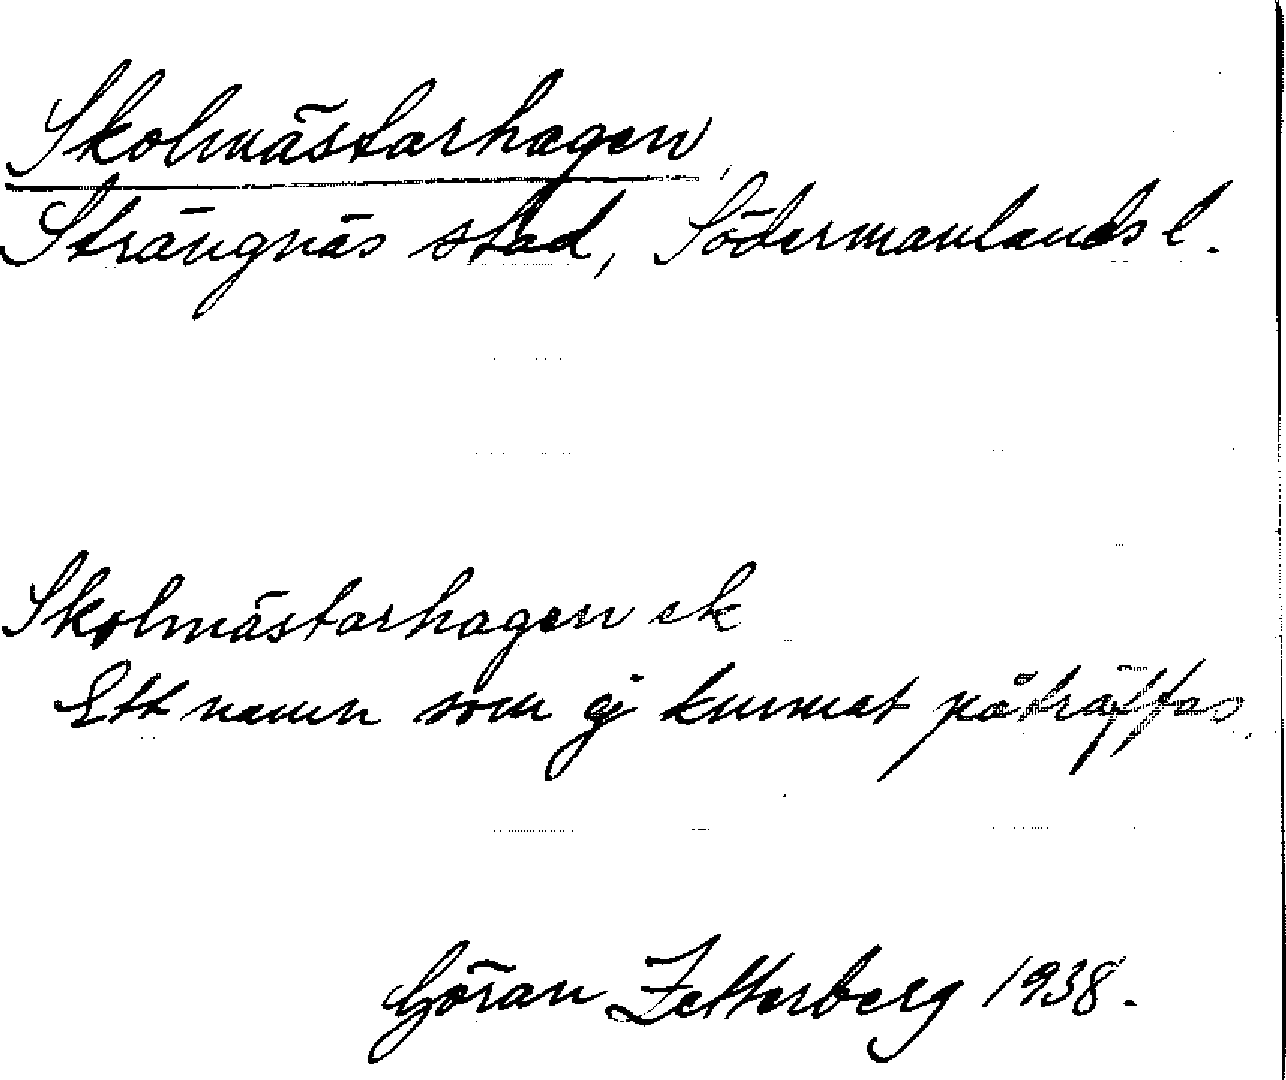 Skolmästarhagen
Strängnäs stad, Södermanlands l.
Skolmästarhagen ek
Ett namn som ej kunnat påträffas.
Göran Zetterberg 1938.